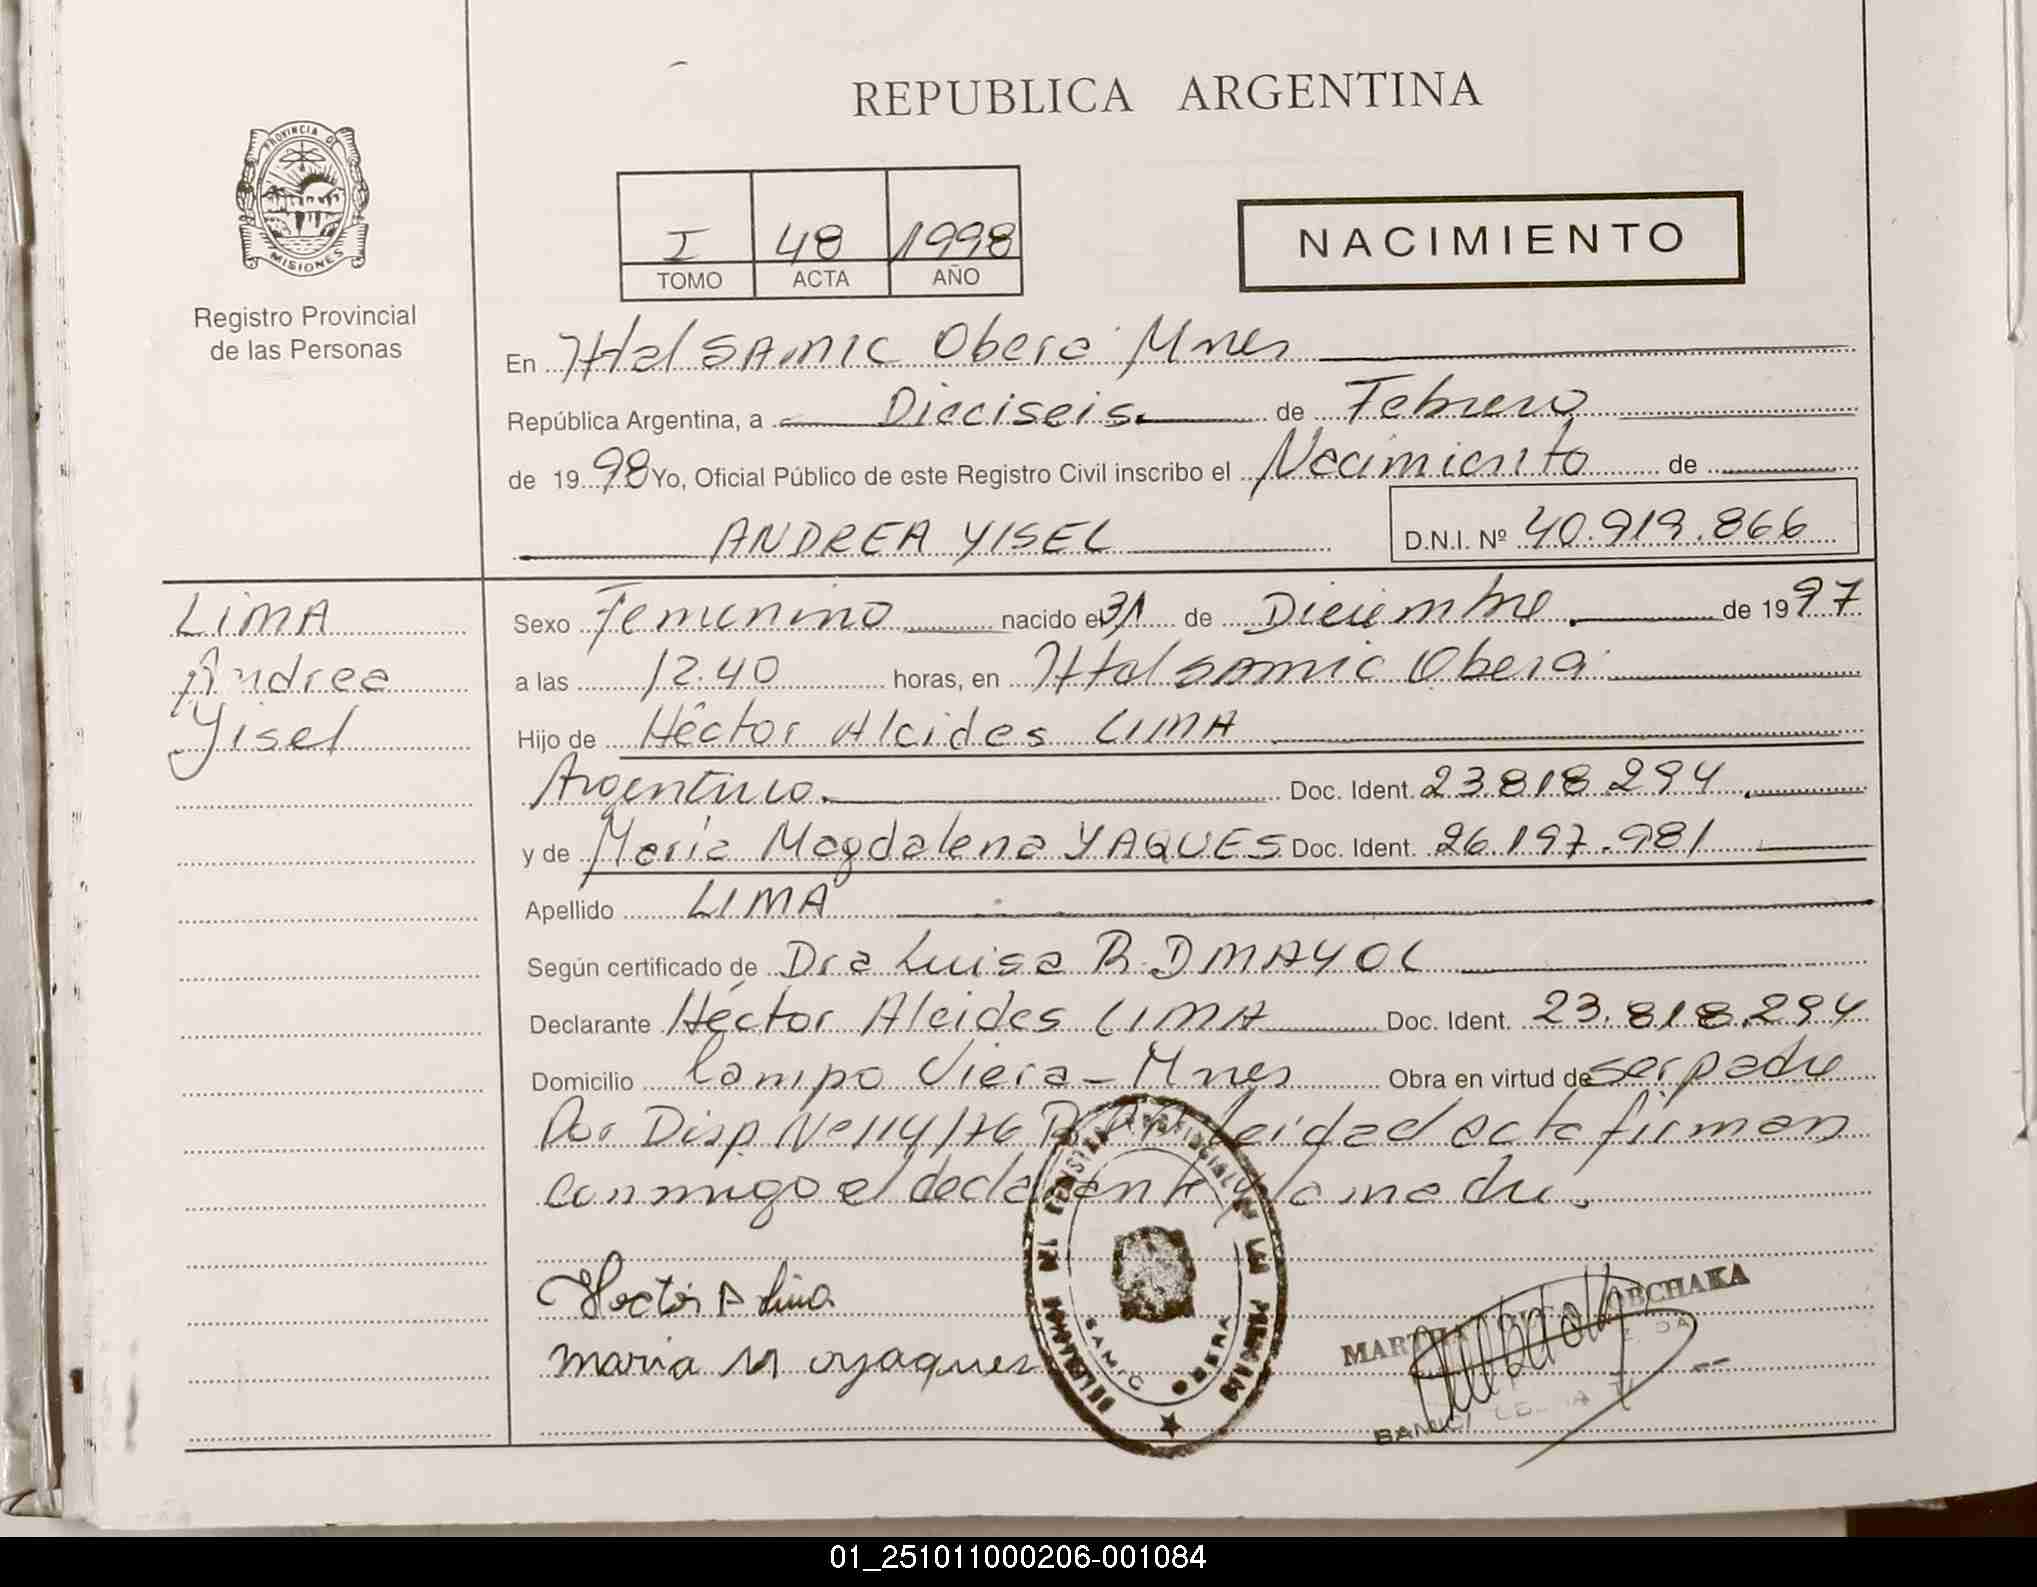 REPUBLICA ARGENTINA
PROVINCIA DE
MISIONES
Registro Provincial
de las Personas
I 48 1998
TOMO ACTA AÑO
NACIMIENTO
En Htal SAMIC Obera Mnes
República Argentina, a Dieciseis de Febrero
de 1998 Yo, Oficial Público de este Registro Civil inscribo el Nacimiento de
ANDREA YISEL D.N.I. Nº 40.919.866
LIMA
Andrea
Yisel
Sexo Femenino nacido el 31 de Diciembre de 1997
a las 12.40 horas, en Htal SAMIC Obera
Hijo de Héctor Alcides LIMA
Argentino Doc. Ident. 23.818.294
y de María Magdalena YAQUES Doc. Ident. 26.197.981
Apellido LIMA
Según certificado de Dra Luisa R. D MAYOL
Declarante Héctor Alcides LIMA Doc. Ident. 23.818.294
Domicilio Campo Viera - Mnes Obra en virtud de ser padre
Por Disp Nº 114/76 leida el acta firman
conmigo el declarante y la madre.
Hector A Lima
maria M yaques
SAMIC OBERA
MARTHA OBCHAKA
SAMIC
01_251011000206-001084